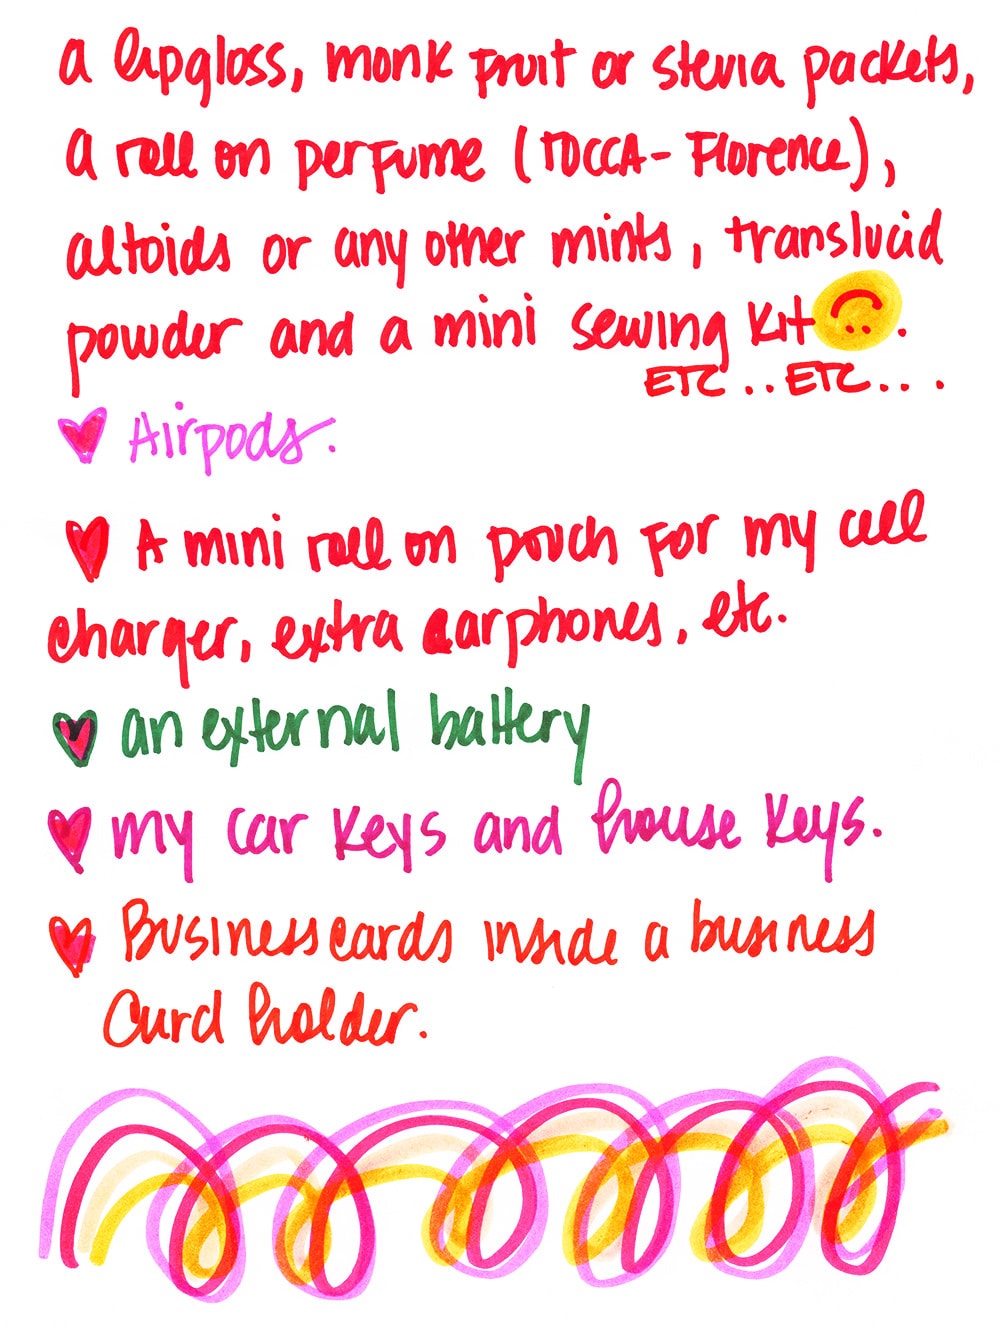 a lipgloss, monk fruit or stevia packets,
a roll on perfume (TOCCA - Florence),
altoids or any other mints, translucid
powder and a mini sewing kit.
ETC .. ETC...
Airpods.
A mini roll on pouch for my cell
charger, extra earphones, etc.
an external battery
my car keys and house keys.
Business cards inside a business
Card holder.